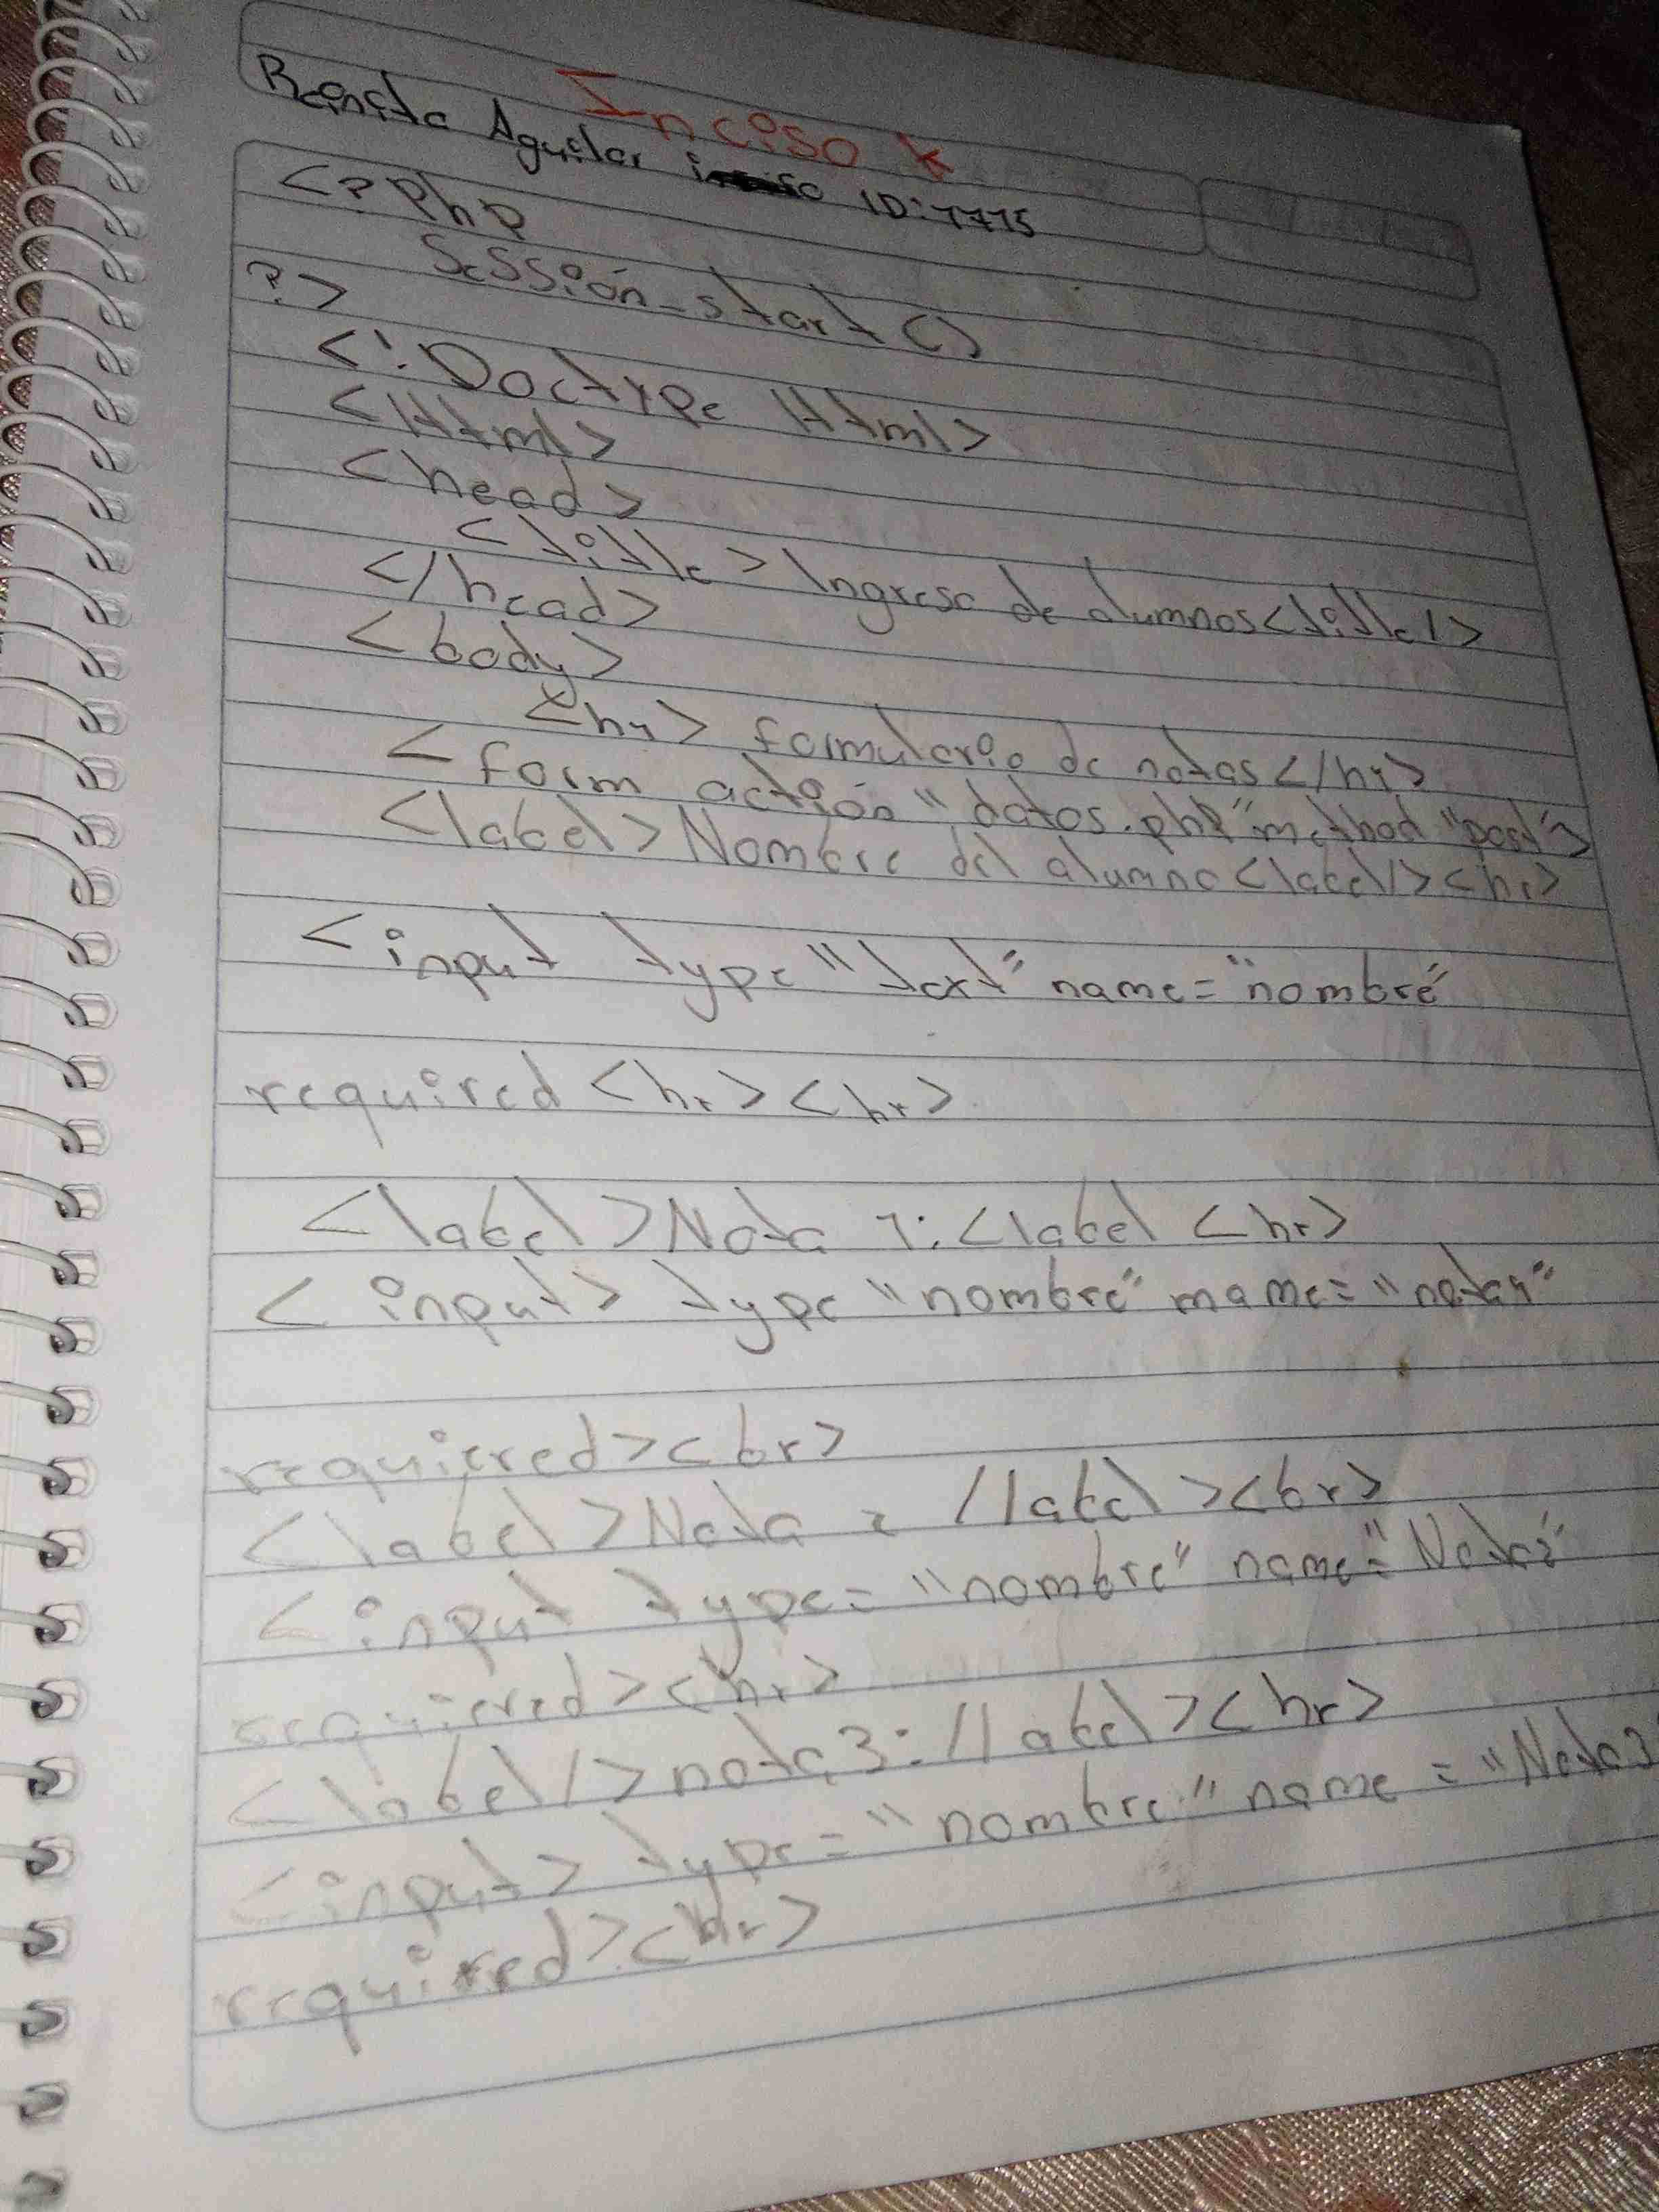 Inciso k
Benita Aguilar ID: 7775
<?php
Sessión_start()
?>
<!Doctype Html>
<Html>
<head>
<title> Ingreso de alumnos<title/>
</head>
<body>
<h1> formulario de notas</h1>
<form actión "datos.php" method "post">
<label> Nombre del alumno<label/><hr>
<input type "text" name="nombre"
required <hr><hr>
<label>Nota 1:<label <hr>
<input> type "nombre" mame="nota1"
requiered><br>
<label>Nota 2 /label><br>
<input type="nombre" name="Nota2"
requiered><hr>
<label/>nota3:/label><hr>
<input> type="nombre" name="Nota3"
required><br>